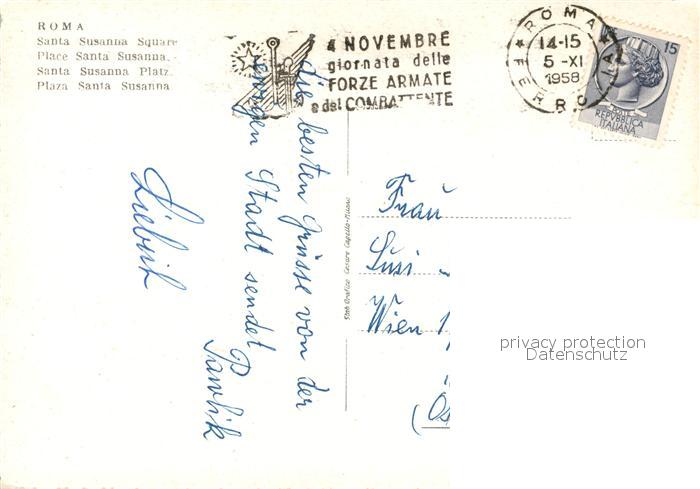 ROMA
Santa Susanna Square
Place Santa Susanna.
Santa Susanna Platz.
Plaza Santa Susanna
4 NOVEMBRE
giornata delle
FORZE ARMATE
e del COMBATTENTE
ROMA
14-15
5-XI
1958
FERR
15
REPVBBLICA
ITALIANA
Die besten Grüsse von der
ewigen Stadt sendet
Pawlik
Stab Grafico Cesare Capello-Milano
Frau
Susi
Wien 1
(Ös
privacy protection
Datenschutz